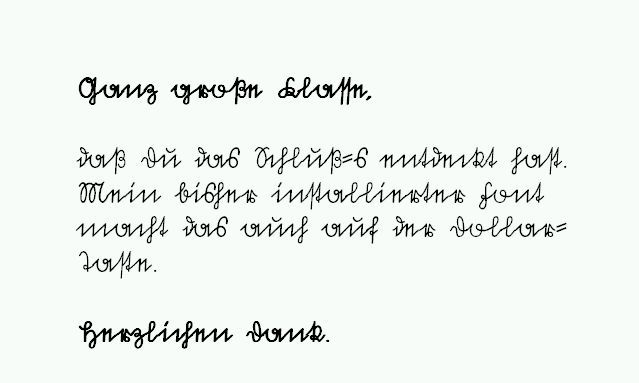 Ganz große Klasse,
daß Du das Schluß=s entdeckt hast.
Mein bisher installierter Font
macht das auch auf der Dollar=
Taste.
Herzlichen Dank.